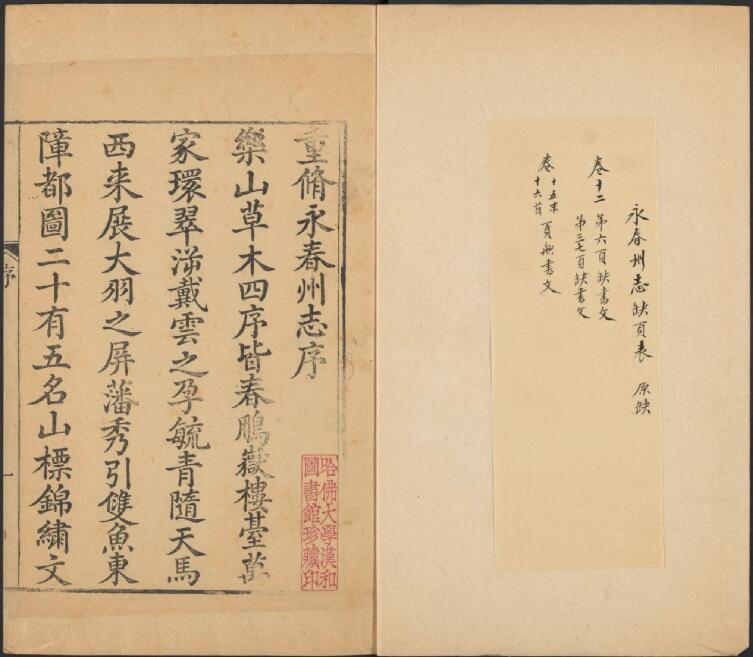 永春州志缺頁表 原缺
卷十二 第六頁缺書文
第三七頁缺書文
卷十五末
十六首 頁無書文
重脩永春州志序
樂山草木四序皆春鵬嶽樓臺萬
家環翠溯戴雲之孕毓青隨天馬
西来展大羽之屏藩秀引雙魚東
障都圖二十有五名山標錦繡文
序
一
哈佛大學漢和
圖書館珍藏印